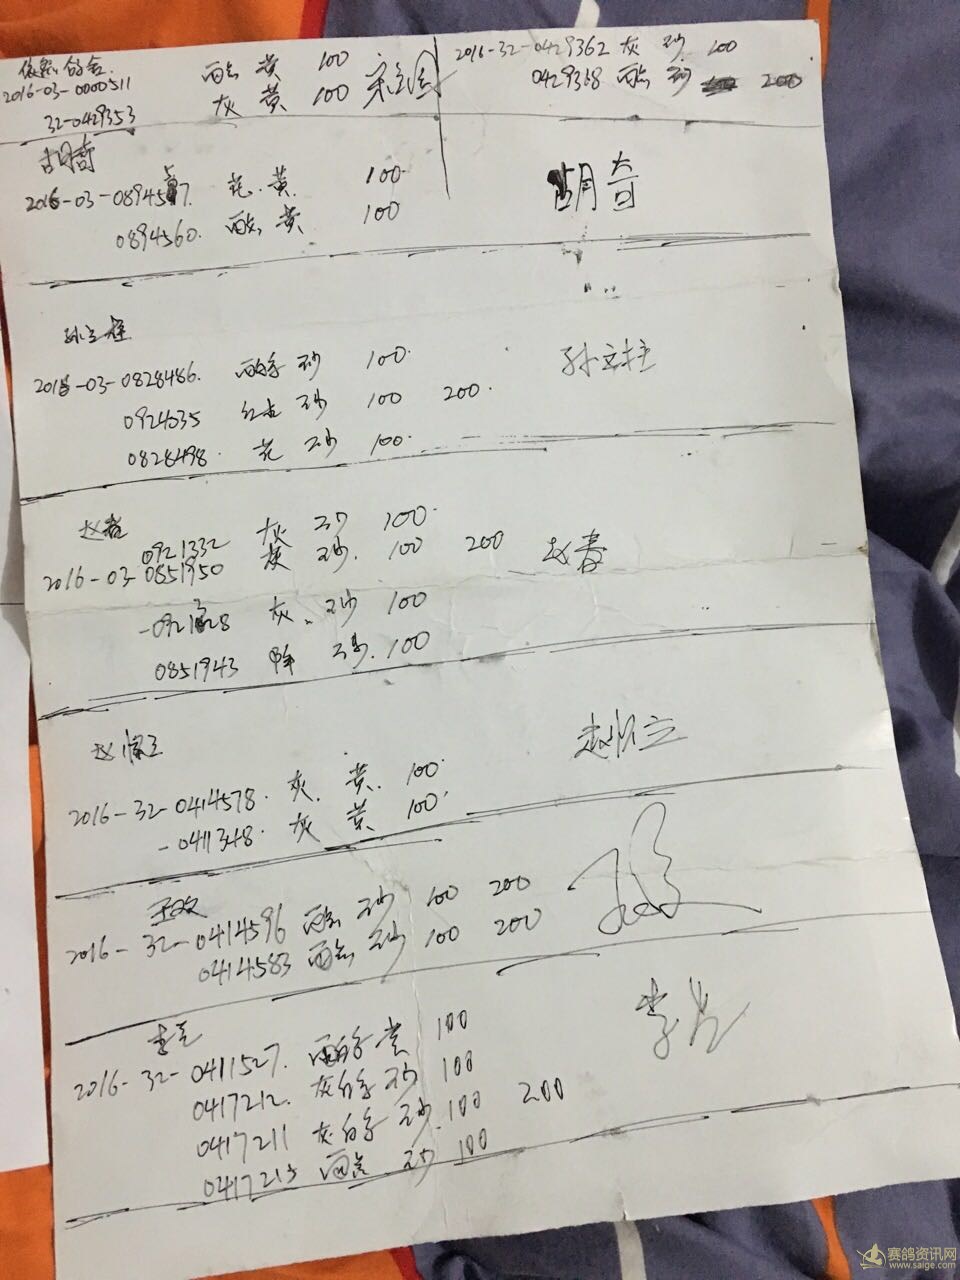 2016-03-0000511 雨点 黄 100
32-0429353 灰 黄 100
2016-32-0429362 灰 砂 100
0429368 雨点 砂 200
胡奇
2016-03-0894517. 花. 黄. 100.
0894560. 雨点 黄 100
胡奇
孙立柱
2016-03-0828486. 雨白条 砂 100.
0924035 红 砂 100 200.
0828498. 花 砂 100.
孙立柱
赵春
0921332 灰 砂 100.
2016-03-0851950 灰 砂. 100 200
赵春
灰. 砂 100
0851943 100
赵怀立
2016-32-0414578. 灰. 黄. 100.
-0411348. 灰 黄 100.
赵怀立
2016-32-0414596 雨点 砂 100 200
0414583 雨点 砂 100 200
李兰
2016-32-0411527. 雨白条 黄 100
0417212. 灰白条 砂 100
0417211 灰白条 砂. 100 200
0417213 雨点 砂 100
赛鸽资讯网
www.saige.com